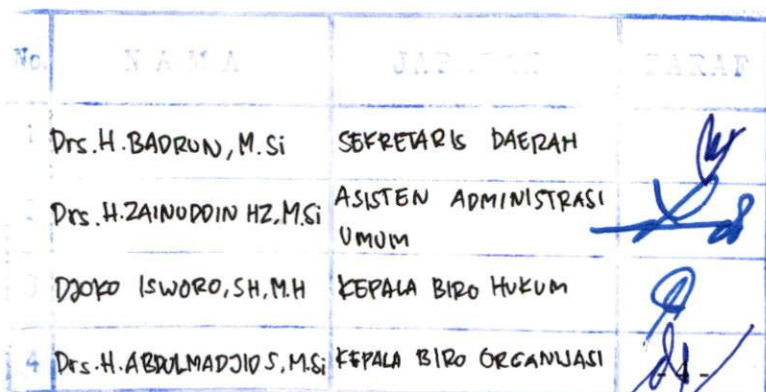 No. N A M A JABATAN PARAF
1 Drs.H.BADRUN, M.Si SEKRETARIS DAERAH
2 Drs.H.ZAINUDDIN HZ, M.Si ASISTEN ADMINISTRASI
UMUM
3 DJOKO ISWORO, SH, M.H KEPALA BIRO HUKUM
4 Drs.H.ABDULMADJID S, M.Si KEPALA BIRO ORGANISASI - 4 -